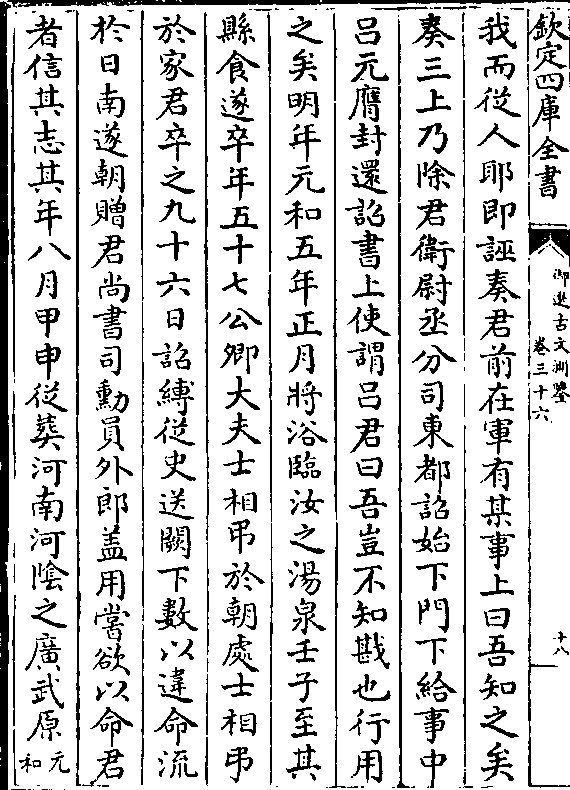 欽定四庫全書
御選古文淵鑒
卷三十六
十八
我而從人耶即誣奏君前在軍有某事上曰吾知之矣
奏三上乃除君衛尉丞分司東都詔始下門下給事中
吕元膺封還詔書上使謂吕君曰吾豈不知戡也行用
之矣明年元和五年正月將浴臨汝之湯泉壬子至其
縣食遂卒年五十七公卿大夫士相弔於朝處士相弔
於家君卒之九十六日詔縛從史送闕下數以違命流
於日南遂朝贈君尚書司勳員外郎盖用嘗欲以命君
者信其志其年八月甲申從葬河南河陰之廣武原元和